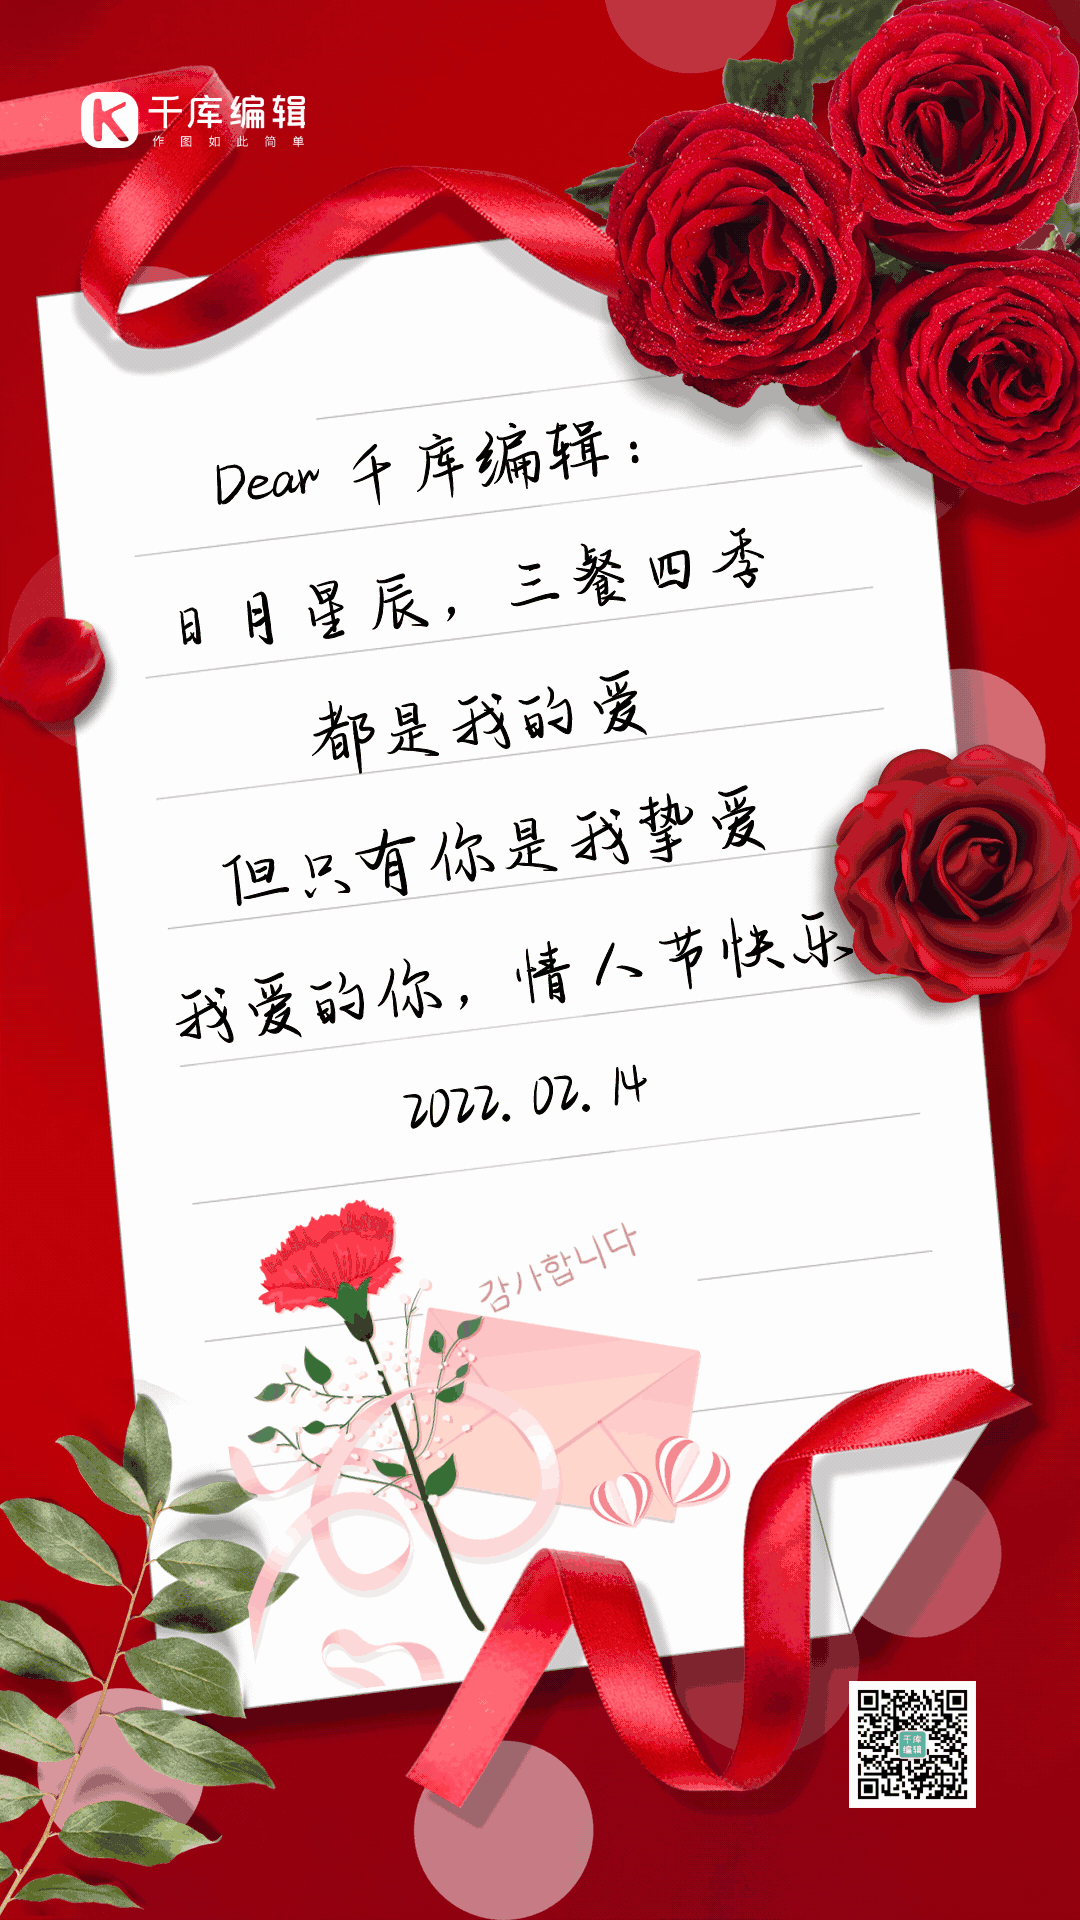 千库编辑
作图如此简单
Dear 千库编辑：
日月星辰，三餐四季
都是我的爱
但只有你是我挚爱
我爱的你，情人节快乐
2022.02.14
감사합니다
千库
编辑